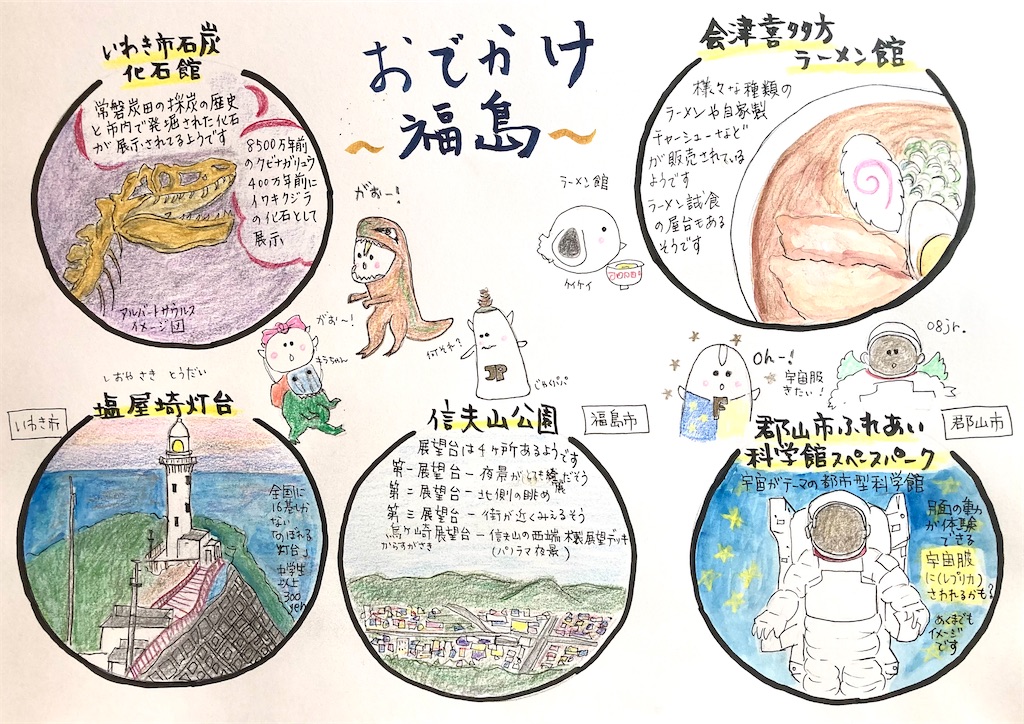 おでかけ
〜福島〜
いわき市石炭
化石館
常磐炭田の採炭の歴史
と市内で発掘された化石
が展示されてるようです
8500万年前
のクビナガリュウ
400万年前に
イワキクジラ
の化石として
展示
アルバートサウルス
イメージ図
会津喜多方
ラーメン館
様々な種類の
ラーメンや自家製
チャーシューなど
が販売されている
ようです
ラーメン試食
の屋台もある
そうです
がおー!
ラーメン館
ケイケイ
がお〜!
キラちゃん
何それ?
JP
じゃくパパ
Oh-!
F
宇宙服
きたい!
08jr.
いわき市
しおやさき とうだい
塩屋埼灯台
全国に
16基しか
ない
「のぼれる
灯台」
中学生
以上
300
yen
信夫山公園
福島市
展望台は4ヶ所あるようです
第一展望台ー夜景がとても綺麗だそう
第二展望台ー北側の眺め
第三展望台ー街が近くみえるそう
烏ケ崎展望台ー信夫山の西端 木製展望デッキ
からすがさき
(パノラマ夜景)
郡山市ふれあい
科学館スペースパーク
郡山市
宇宙がテーマの都市型科学館
月面の動き
が体験
できる
宇宙服
に(レプリカ)
さわれるかも?
あくまでも
イメージ
です